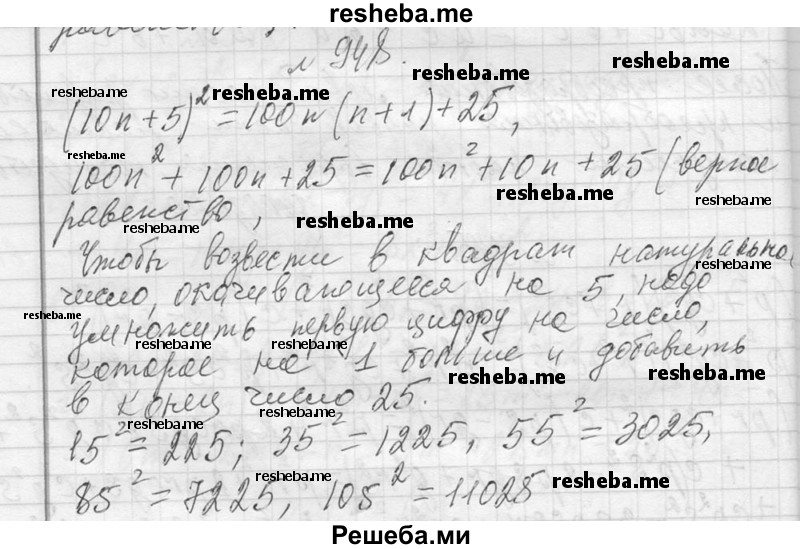 resheba.me
№ 948.
resheba.me
resheba.me resheba.me
(10n+5)² = 100n (n+1)+25,
resheba.me
100n² + 100n + 25 = 100n² + 10n + 25 (верное
resheba.me resheba.me
равенство,
resheba.me resheba.me
Чтобы возвести в квадрат натурально
resheba.me
число, окачивающееся на 5, надо
resheba.me
умножить первую цифру на число,
resheba.me resheba.me
которое на 1 больше и добавить
resheba.me resheba.me
в конец число 25.
resheba.me resheba.me
15² = 225; 35² = 1225, 55² = 3025,
resheba.me
85² = 7225, 105² = 11025
resheba.me
Решеба.ми